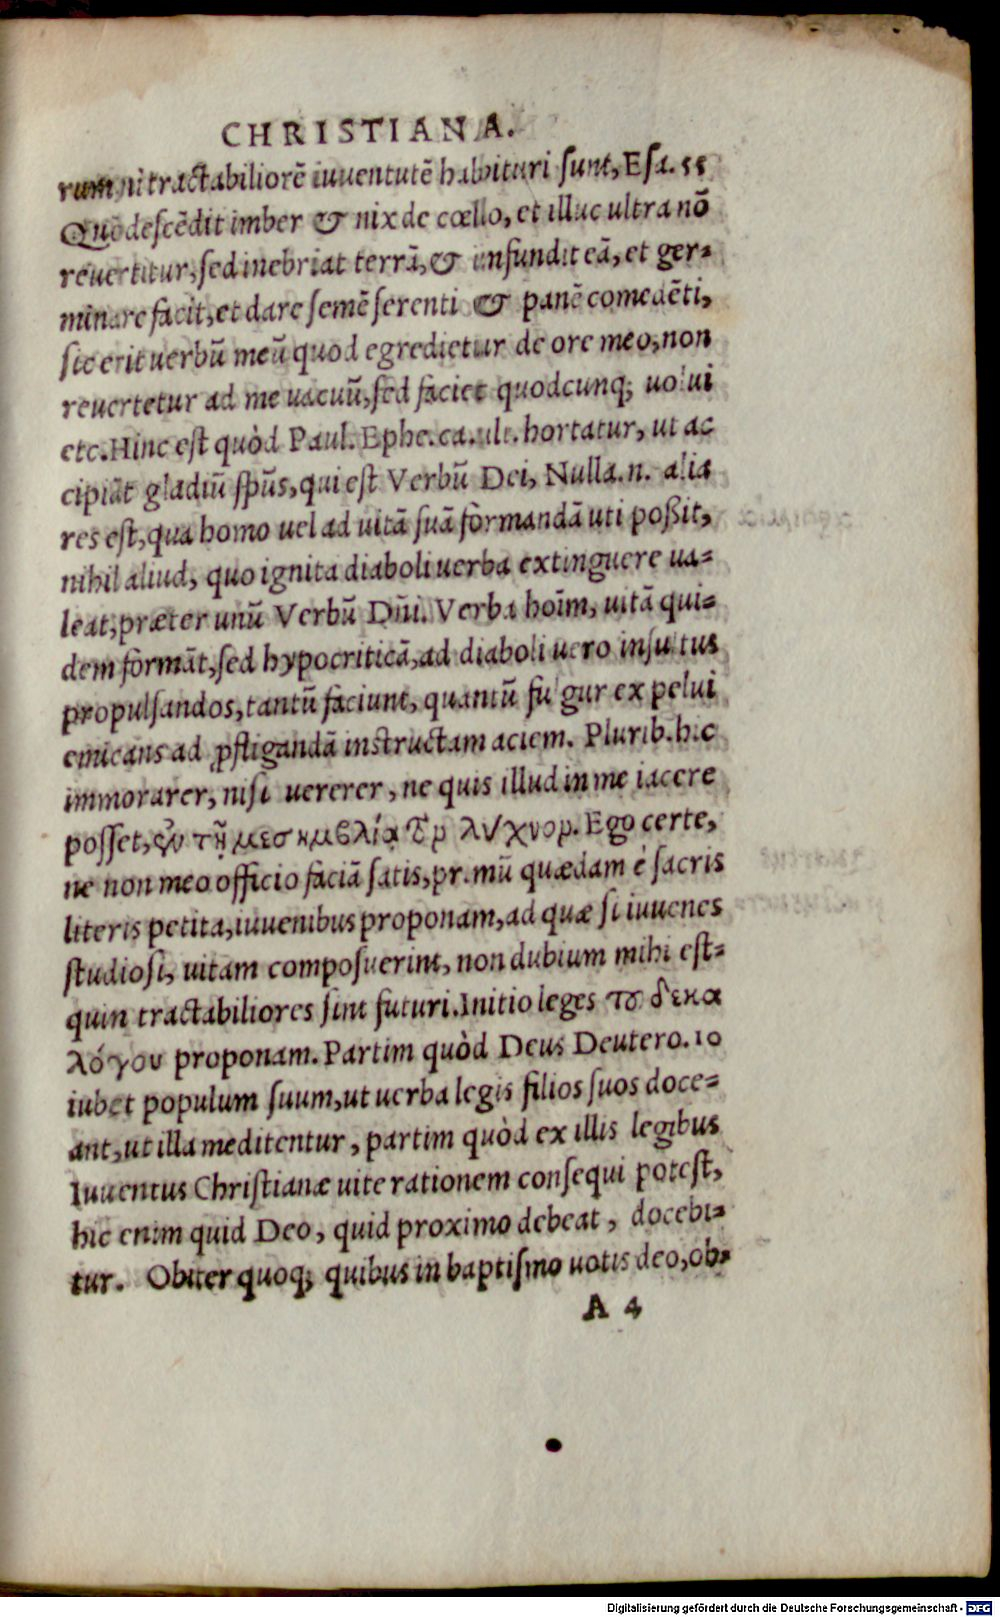 CHRISTIANA.
rum, ni tractabiliorē iuuentutē habituri sunt, Esa. 55
Quō descēdit imber & nix de cœllo, et illuc ultra nō
reuertitur, sed inebriat terrā, & infundit eā, et ger-
minare facit, et dare semē serenti & panē comedēti,
sic erit uerbū meū quod egredietur de ore meo, non
reuertetur ad me uacuū, sed faciet quodcunq; uolui
etc. Hinc est quòd Paul. Ephe. ca. ult. hortatur, ut ac
cipiāt gladiū sp̄us, qui est Verbū Dei, Nulla .n. alia
res est, qua homo uel ad uitā suā formandā uti possit,
nihil aliud, quo ignita diaboli uerba extinguere ua-
leat, præter unū Verbū Dñi. Verba hoīm, uitā qui-
dem formāt, sed hypocriticā, ad diaboli uero insultus
propulsandos, tantū faciunt, quantū fulgur ex pelui
emicans ad pstigandā instructam aciem. Plurib. hic
immorarer, nisi uererer, ne quis illud in me iacere
posset, ἐν τῇ μεσημβρίᾳ τὸν λύχνον. Ego certe,
ne non meo officio faciā satis, primū quædam è sacris
literis petita, iuuenibus proponam, ad quæ si iuuenes
studiosi, uitam composuerint, non dubium mihi est-
quin tractabiliores sint futuri. Initio leges τοῦ δεκα
λόγου proponam. Partim quòd Deus Deutero. 10
iubet populum suum, ut uerba legis filios suos doce-
ant, ut illa meditentur, partim quòd ex illis legibus
Iuuentus Christianæ uite rationem consequi potest,
hic enim quid Deo, quid proximo debeat, docebi-
tur. Obiter quoq; quibus in baptismo uotis deo, ob-
A 4
Digitalisierung gefördert durch die Deutsche Forschungsgemeinschaft - DFG